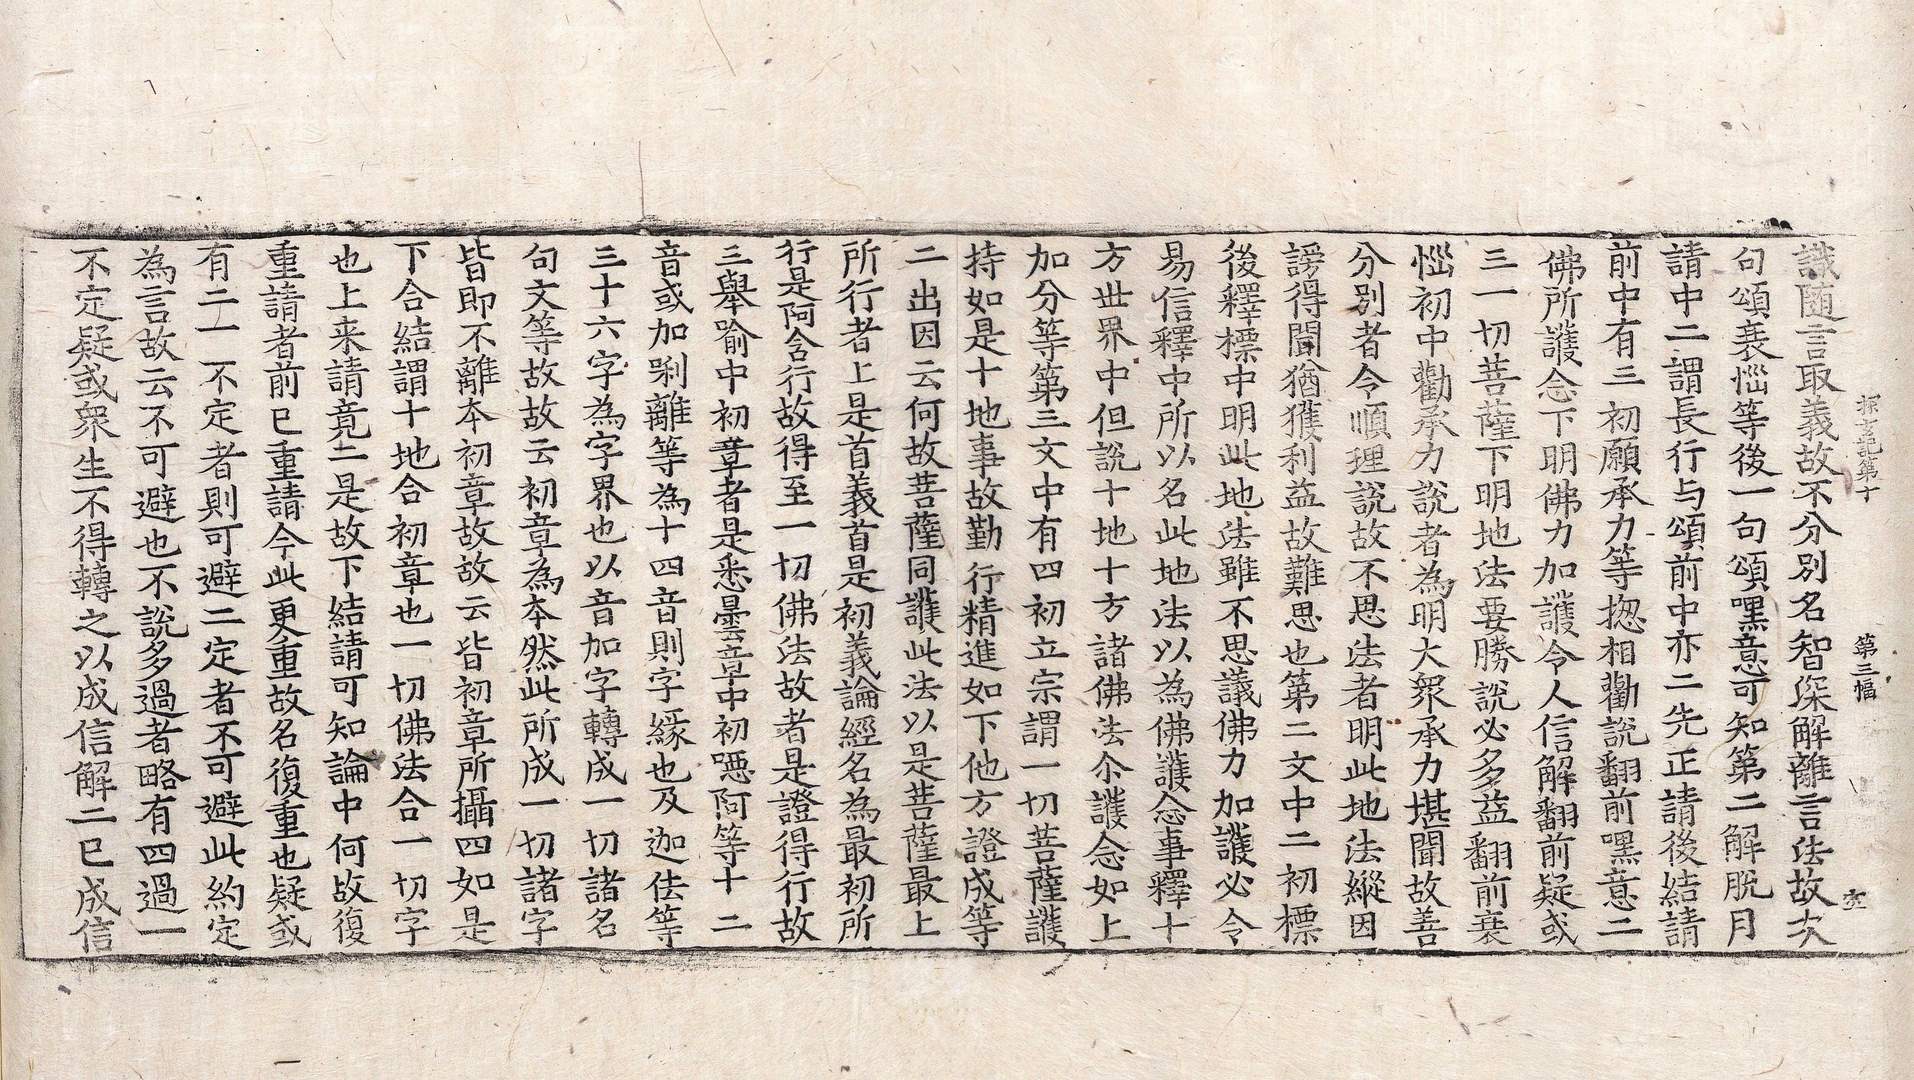 識随言取義故不分別名智深解離言法故次
句頌衰惱等後一句頌嘿意可知第二解脫月
請中二謂長行与頌前中亦二先正請後結請
前中有三初願承力等揔相勸說翻前嘿意二
佛所護念下明佛力加護令人信解翻前疑或
三一切菩薩下明地法要勝說必多益翻前衰
惱初中勸承力說者為明大眾承力堪聞故善
分別者令順理說故不思法者明此地法縱因
謗得聞猶獲利益故難思也第二文中二初標
後釋標中明此地法雖不思議佛力加護必令
易信釋中所以名此地法以為佛護念事釋十
方世界中但說十地十方諸佛法尒護念如上
加分等第三文中有四初立宗謂一切菩薩護
持如是十地事故勤行精進如下他方證成等
二出因云何故菩薩同護此法以是菩薩最上
所行者上是首義首是初義論經名為最初所
行是阿含行故得至一切佛法故者是證得行故
三舉喻中初章者是悉曇章中初噁阿等十二
音或加𠼝離等為十四音則字緣也及迦佉等
三十六字為字界也以音加字轉成一切諸名
句文等故故云初章為本然此所成一切諸字
皆即不離本初章故故云皆初章所攝四如是
下合結謂十地合初章也一切佛法合一切字
也上来請竟二是故下結請可知論中何故復
重請者前已重請今此更重故名復重也疑或
有二一不定者則可避二定者不可避此約定
為言故云不可避也不說多過者略有四過一
不定疑或眾生不得轉之以成信解二已成信
探玄記第十　第三幅